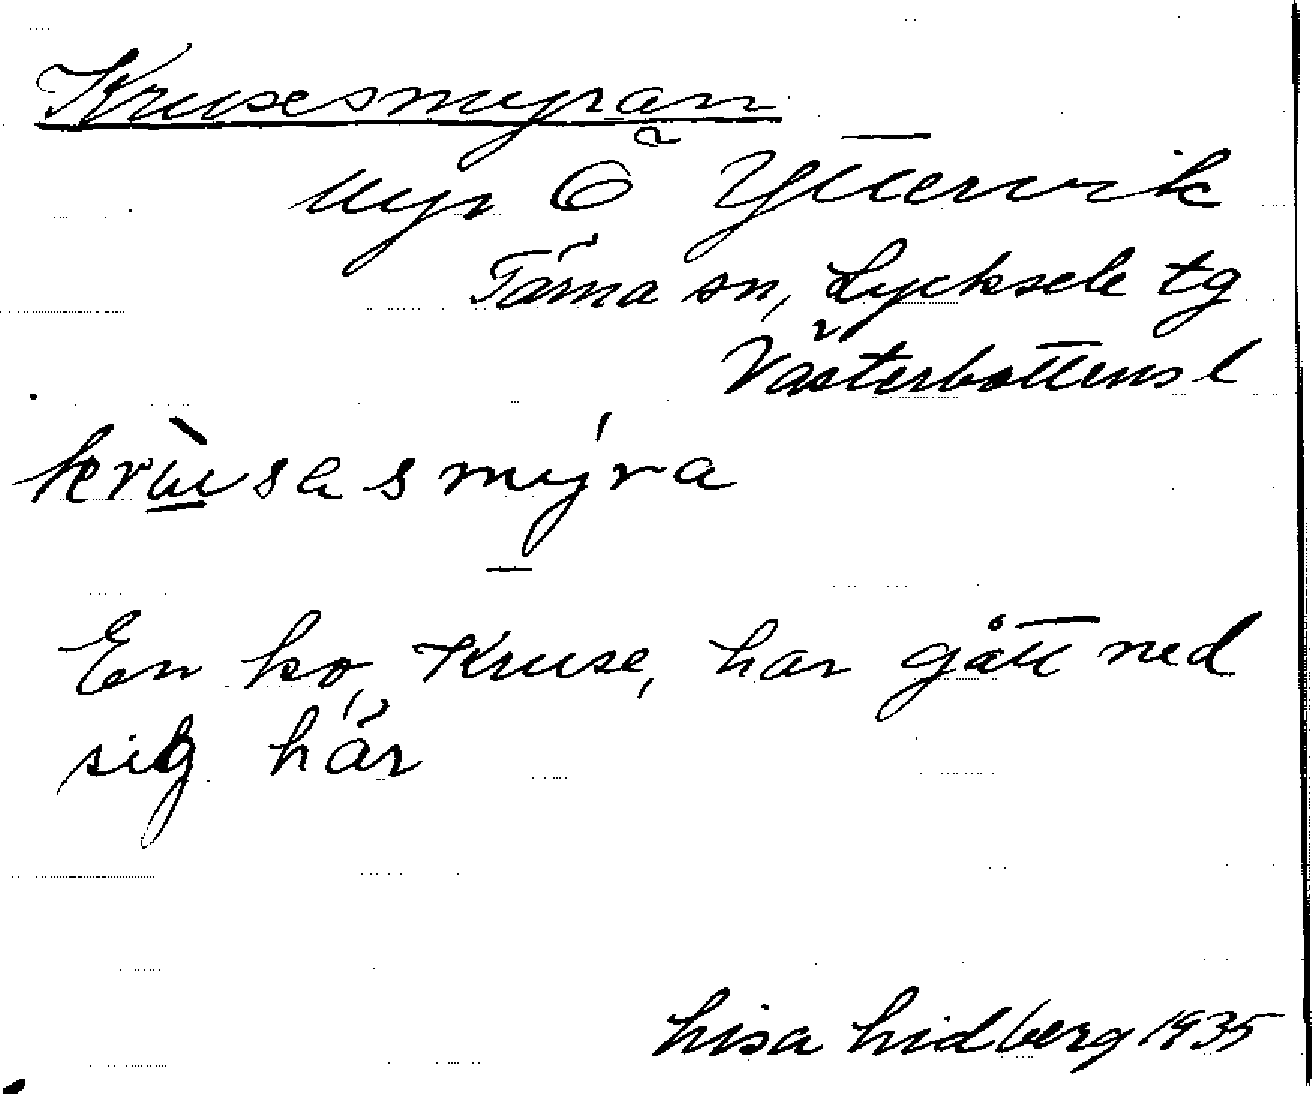 Krusesmyran
Myr Ö Yttervik
Tärna sn, Lycksele tg
Västerbottens l
kràusasmýra
En ko, Kruse, har gått ned
sig här
Lisa Lidberg 1935